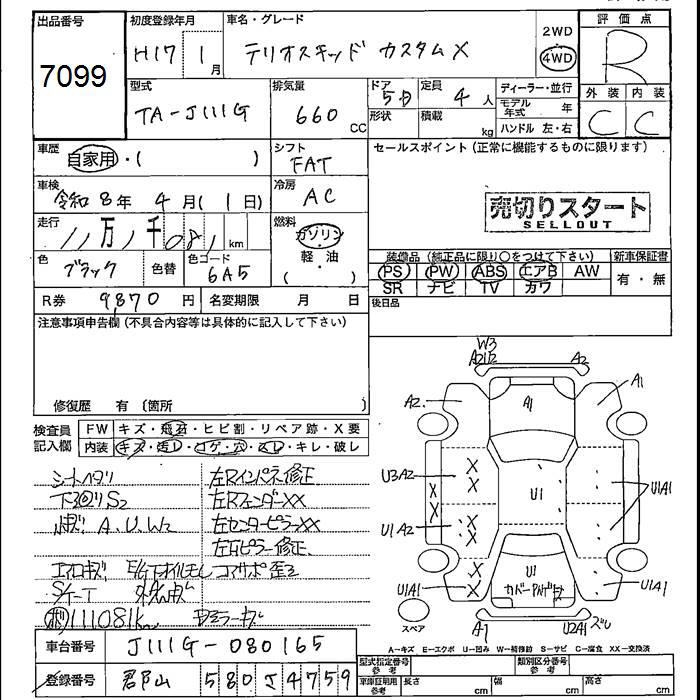 出品番号
7099
初度登録年月
H17 1月
車名・グレード
テリオスキッド カスタムX
2WD
4WD
評価点
R
外装 内装
C C
型式
TA-J111G
排気量
660 CC
ドア
5D
形状
定員
4人
積載
kg
ディーラー・並行
モデル年式 年
ハンドル 左・右
車歴
自家用・( )
シフト
FAT
セールスポイント(正常に機能するものに限ります)
売切りスタート
SELLOUT
車検
令和8年 4月(1日)
冷房
AC
走行
11万1千081km
燃料
ガソリン
軽・油
( )
色
ブラック
色替
色コード
6A5
装備品(純正品に限り〇をつけて下さい)
PS PW ABS エアB AW
SR ナビ TV カワ
新車保証書
有・無
後日品
R券 9,870円
名変期限 月 日
注意事項申告欄(不具合内容等は具体的に記入して下さい)
修復歴 有〔箇所 〕
検査員
記入欄
FW キズ・飛石・ヒビ割・リペア跡・X要
内装 キズ・汚レ・コゲ・穴・スレ・キレ・破レ
シートヘタリ
下回りS2
A.U.W2
エアロキズ
左Rインパネ修正
左RフェンダーXX
左センターピラーXX
左Rピラー修正
コアサポ歪ミ
111081km
W3
A2U2
A2
A1
A2
A1
U3A2
U1
U1A1
U1A2
U1A1
U1
U1A1
スペア
A-1
U2A1
A-キズ E-エクボ U-凹み W-補修跡 S-サビ C-腐食 XX-交換済
車台番号
J111G-080165
登録番号
郡山 580 さ 4759
型式指定番号
参考
類別区分番号
参考
車庫証明用
参考
長さ cm
幅 cm
高さ cm